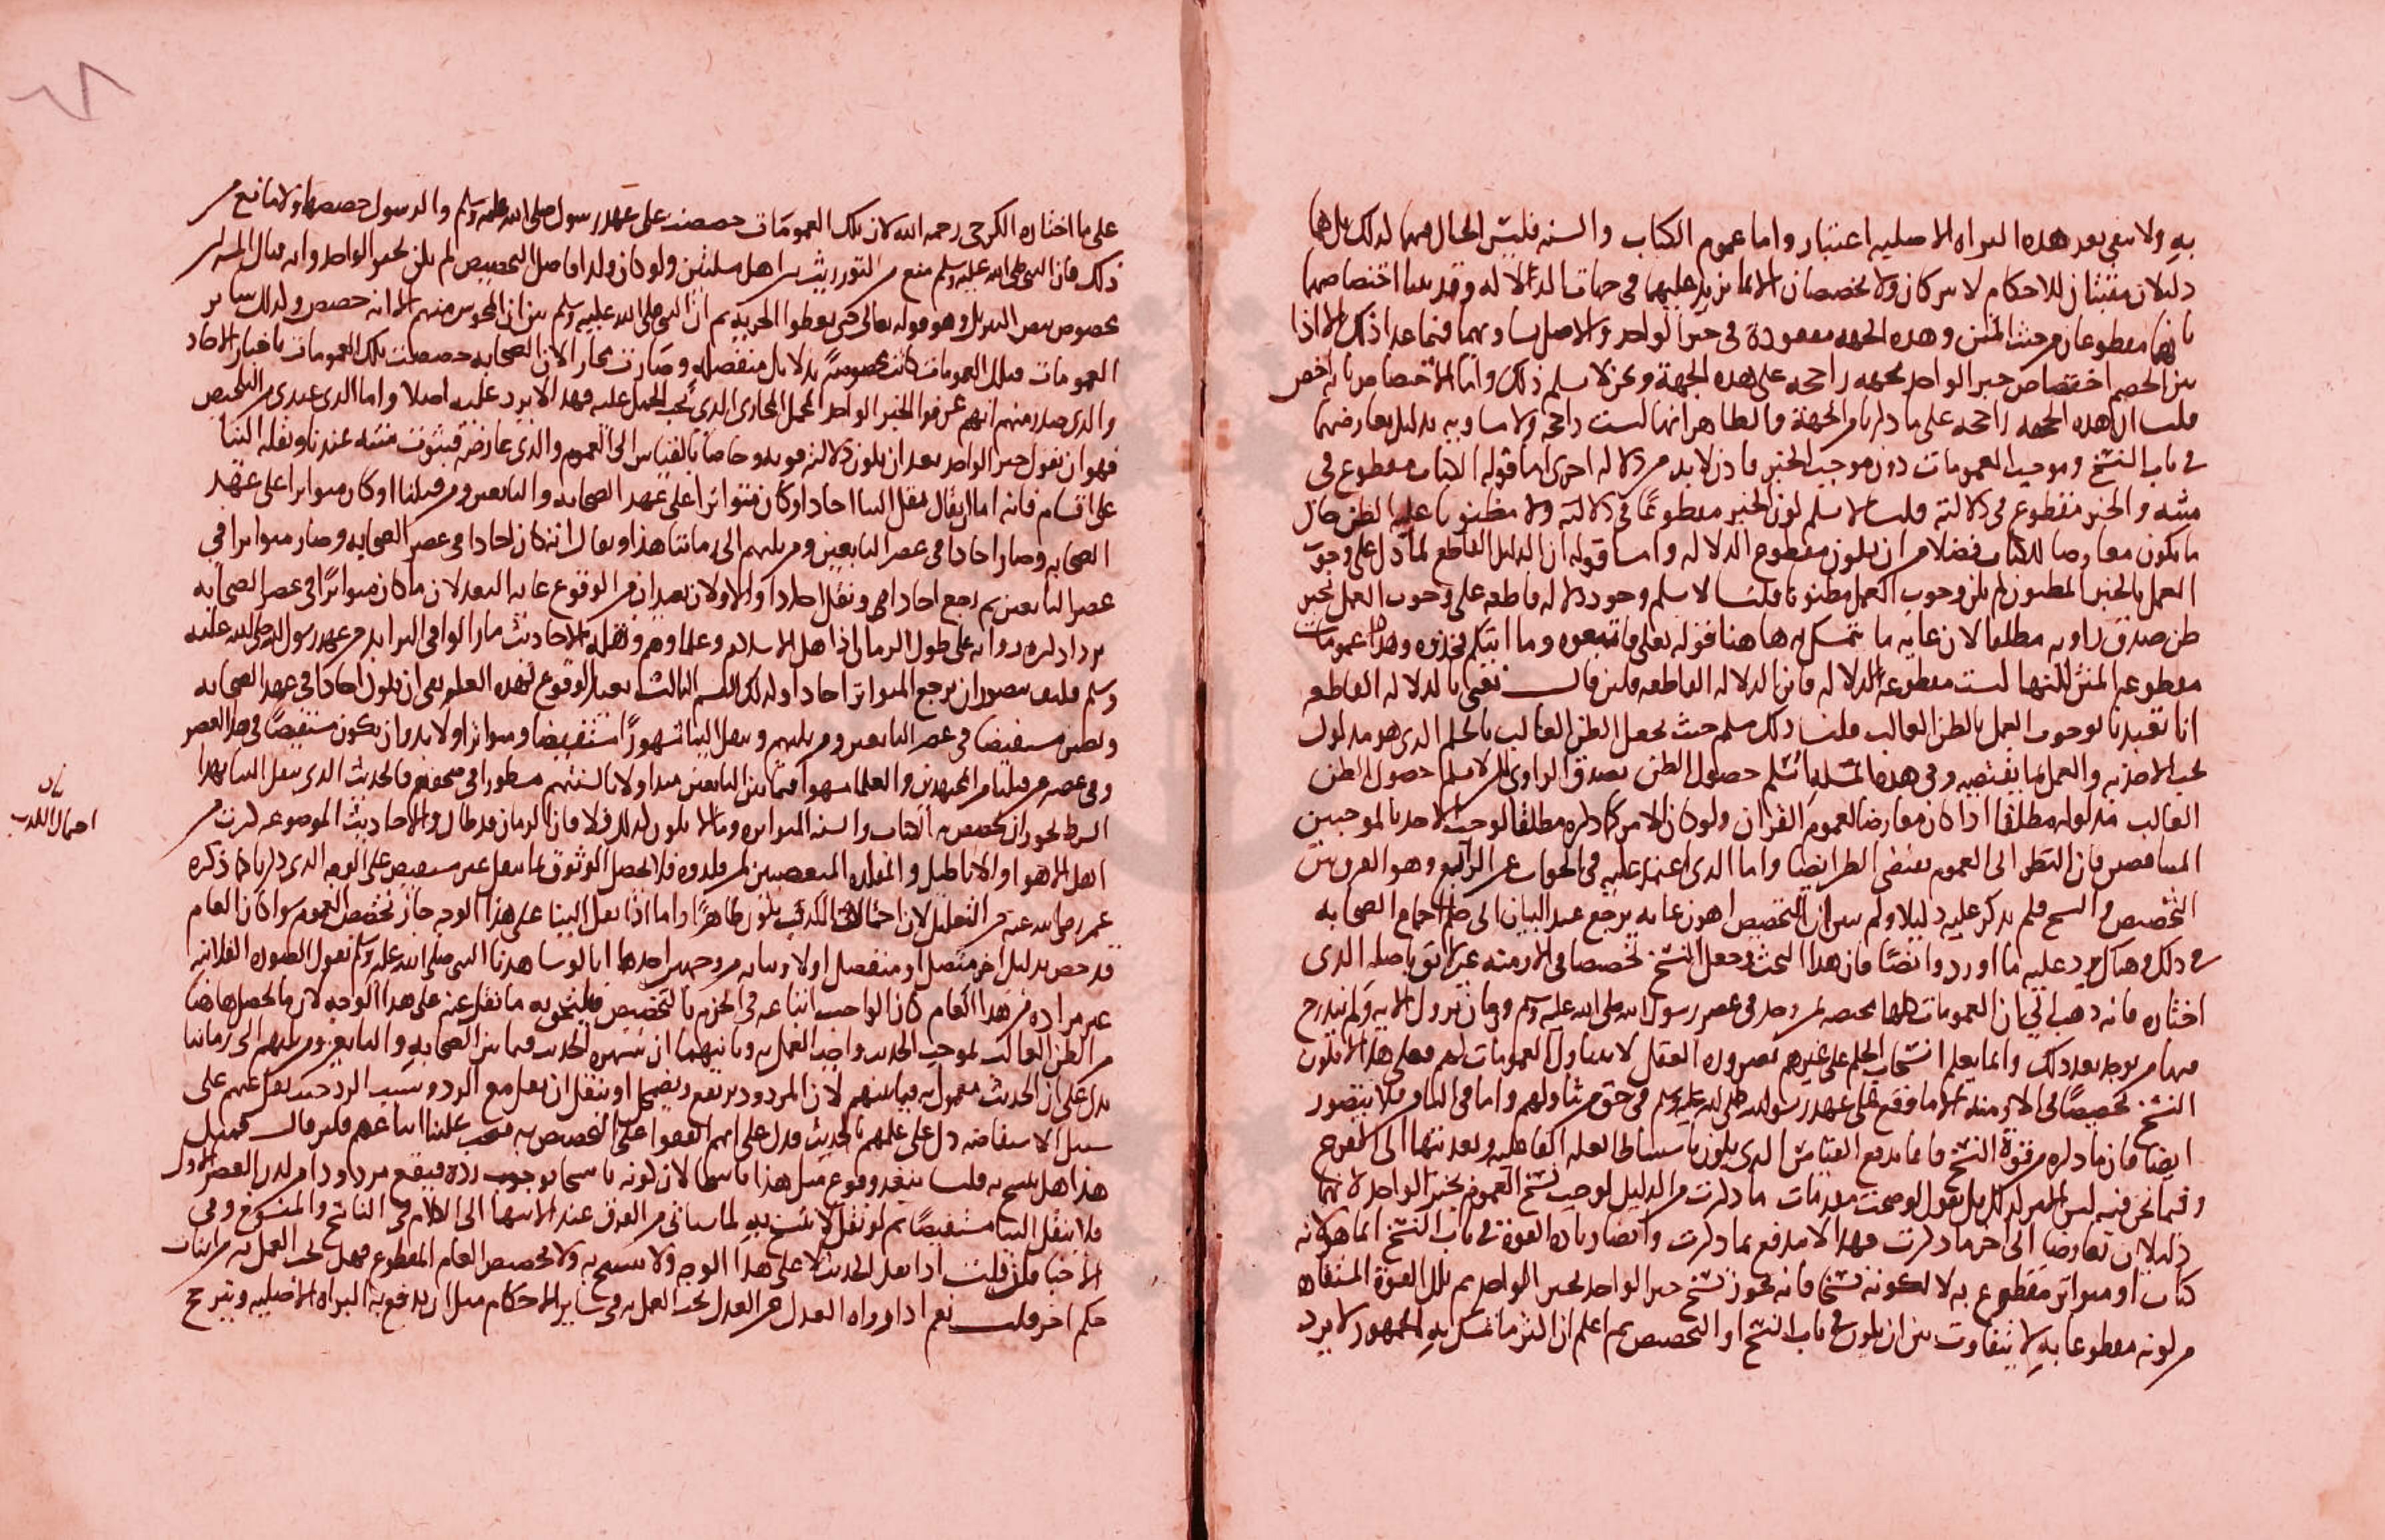 به ولا ينفى بعد هذه البراه الاصليه اعتبار واما عموم الكتاب والسنه فليس الحال فيهما لذلك بل هما
دليلان مثبتان للاحكام لا يتركان ولا يخصصان الا بما يزيد عليهما في جهات الدلاله وقد بينا اختصاصهما
بانهما مقطوعان من حيث المتن وهذه الجهه مفقودة في خبر الواحد والاصل تساويهما فيما عدا ذلك الا اذا
بين الخصم اختصاص خبر الواحد بجهه راجحه على هذه الجهة ونحن لا نسلم ذلك واما الاختصاص بانه اخص
قلت ان هذه الجهه راجحه على ما ذكرنا من الجهة والظاهر انها ليست راجحه ولا مساويه بدليل تعارضهما
في باب النسخ وموجب العمومات دون موجب الخبر فاذن لا بد من دلاله اخرى اما قوله الكتاب مقطوع في
متنه والخبر مقطوع في دلالته قلت لا نسلم كون الخبر مقطوعًا في دلالته ولا مظنونا عليه الظن حال
ما يكون معارضا للكتاب فضلا من ان يكون مقطوع الدلاله واما قوله ان الدليل القاطع لما دل على وجوب
العمل بالخبر المظنون لم يكن وجوب العمل مظنونا قلنا لا نسلم وجود دلاله قاطعه على وجوب العمل بخبر
ظن صدق راويه مطلقا لان غايه ما يتمسك به ها هنا قوله تعلى فاتبعوه وما اتيكم فخذوه وهذا عمومات
مقطوعه المتن لكنها ليست مقطوعه الدلاله فاين الدلاله القاطعه فلين قال نعني بالدلاله القاطعه
انا تعبدنا بوجوب العمل بالظن الغالب قلنا ذلك مسلم حيث يحصل الظن الغالب بالحكم الذي هو مدلول
يجب الاخذ به والعمل بما يقتضيه وفي هذه المسله نسلم حصول الظن بصدق الراوي لكن لا نسلم حصول الظن
الغالب مدلوله مطلقا اذا كان معارضا لعموم القران ولو كان الامر كما ذكره مطلقا لوجب الاخذ بالموجبين
المتناقضين فان النظر الى العموم يقتضى الظن ايضا واما الذي اعتمد عليه في الجواب عن الرابع وهو الفرق بين
التخصيص والنسخ فلم يذكر عليه دليلا ولم يبين ان التخصيص اهون غايه يرجع عند البيان الى حكم اجماع الصحابه
في ذلك وهنا يرد عليه ما اورد وايضًا فان هذا البحث وجعل النسخ تخصيصا في الازمنه غير لائق باصله الذي
اختاره فانه ذهب الى ان العمومات كلها مختصه بمن وجد في عصر رسول الله صلى الله عليه وسلم وزمان نزول الايه ولم يندرج
فيها من يوجد بعد ذلك وانما يعلم انسحاب الحكم على غيرهم بضروره العقل لا بتناول العمومات لهم فعلى هذا لا يكون
النسخ تخصيصًا في الازمنه الا ما وقع على عهد رسول الله صلى الله عليه وسلم في حق من تناولهم واما في الباقي فلا يتصور
ايضا فان ما ذكره من قوة النسخ فانما يدفع القياس الذي يكون باستنباط العله الفاعليه وتعديتها الى الفرع
وفيما نحن فيه ليس الامر كذلك بل نقول لو صحت مقدمات ما ذكرت من الدليل لوجب نسخ العموم بخبر الواحد لانهما
دليلان تعارضا الى اخر ما ذكرت فهذا لا يندفع بما ذكرت وايضا زياده القوة في باب النسخ انما هو لانه
كتاب او متواتر مقطوع به لا لكونه نسخا فانه يجوز نسخ خبر الواحد بخبر الواحد ثم تلك القوة المستفاه
من كونه مقطوعا به لا يتفاوت بين ان يكون في باب النسخ او التخصيص ثم اعلم ان اكثر ما تمسك به الجمهور لا يرد
على ما اختاره الكرخى رحمه الله لان تلك العمومات خصصت على عهد رسول الله صلى الله عليه وسلم والرسول خصصها ولا مانع من
ذلك فان النبي صلى الله عليه وسلم منع من التوريث بين اهل ملتين ولو كان ولدا فاصل التخصيص لم يكن بخبر الواحد وانه
بخصوص بنص التنزيل وهو قوله تعالى حتى يعطوا الجزيه ثم ان النبي صلى الله عليه وسلم بين ان المجوس منهم لا انه خصص وكذلك سائر
العمومات فتلك العمومات كانت مخصوصة بدلائل منفصله وصارت مجازا لان الصحابه خصصت تلك العمومات باخبار الاحاد
والذي صدر منهم انهم عرفوا بالخبر الواحد المحمل المجازى الذي يجب الحمل عليه فهذا لا يرد عليه اصلا واما الذي عندى من التلخيص
فهو ان نقول خبر الواحد بعد ان يكون دلالته قويه وخاصا بالقياس الى العموم والذي عارضه فثبوت متنه عندنا ونقله الينا
على اقسام فانه اما ان يقال نقل الينا احادا وكان متواترا على عهد الصحابه والتابعين ومن قبلنا او كان متواترا على عهد
الصحابه وصار احادا في عصر التابعين ومن يليهم الى زماننا هذا او يقال انه كان احادا في عصر الصحابه وصار متواترا في
عصر التابعين ثم رجع احادا ونقل احادا والاولان بعيدان من الوقوع غايه البعد لان ما كان متواترًا في عصر الصحابه
يزداد كثره رواته على طول الزمان اذا اهل الاسلام وعلماوهم ونقله الاحاديث ما زالوا في التزايد من عهد رسول الله صلى الله عليه
وسلم فكيف يتصور ان يرجع المتواتر احادا وكذلك القسم الثالث بعيد الوقوع لهذه العله بقي ان يكون احادا في عهد الصحابه
ويصير مستفيضا في عصر التابعين ومن يليهم وينقل الينا مشهورًا مستفيضا ومتواترا ولا بد وان يكون مستفيضًا في هذا العصر
وفي عصر من قبلنا من المجتهدين والعلما مشهورا فيما بين التابعين متداولا بالسنتهم مسطورا في صحفهم فالحديث الذي ينقل الينا بهذا
الشرط يجوز ان تخصص به الكتاب والسنه المتواتره وما لا يكون كذلك فلا فان الزمان قد طال والاحاديث الموضوعه كثرت من
اهل الاهوا والاباطيل والمقلده المتعصبين لمن قلدوه فلا يحصل الوثوق بما ينقل غير مستفيض على الوجه الذي ذكرناه كما ذكره
عمر رضى الله عنه من التعليل لان احتمال الكذب يكون ظاهرًا واما اذا نقل الينا على هذا الوجه جاز تخصيص العموم سوا كان العام
قد خص بدليل اخر متصل او منفصل اولا وبيانه من وجهين احدهما انا لو شاهدنا النبي صلى الله عليه وسلم يقول الصوره الفلانيه
غير مراده من هذا العام كان الواجب اتباعه في الجزم بالتخصيص فيلتحق به ما نقل عنه على هذا الوجه لان ما يحصل ها هنا
من الظن الغالب بموجب الحديث واجب العمل به وثانيهما ان شهره الحديث فيما بين الصحابه والتابعين ومن يليهم الى زماننا
يدل على ان الحديث معمول به فيما بينهم لان المردود يرتفع ويضمحل او ينقل ان نقل مع الرد وسبب الرد حيث نقل عنهم على
سبيل الاستفاضه دل على عملهم بالحديث فدل على انهم اتفقوا على التخصيص به فيجب علينا اتباعهم فلين قال فمثل
هذا هل ينسخ به قلنا يبعد وقوع مثل هذا ناسخا لان كونه ناسخا يوجب رده فيقع مردودا من لدن العصر الاول
فلا ينقل الينا مستفيضًا ثم لو نقل لا ينسخ به لما سياتى من الفرق عند الانتها الى الكلام في الناسخ والمنسوخ وفي
الاخبار فلين قلت اذا نقل الحديث لا على هذا الوجه ولا ينسخ به ولا يخصص العام المقطوع فهل يجب العمل به من اثبات
حكم اخر قلت نعم اذا رواه العدل عن العدل يجب العمل به في سائر الاحكام مثل ان يدفع به البراه الاصليه ويترجح
احتمال الكذب